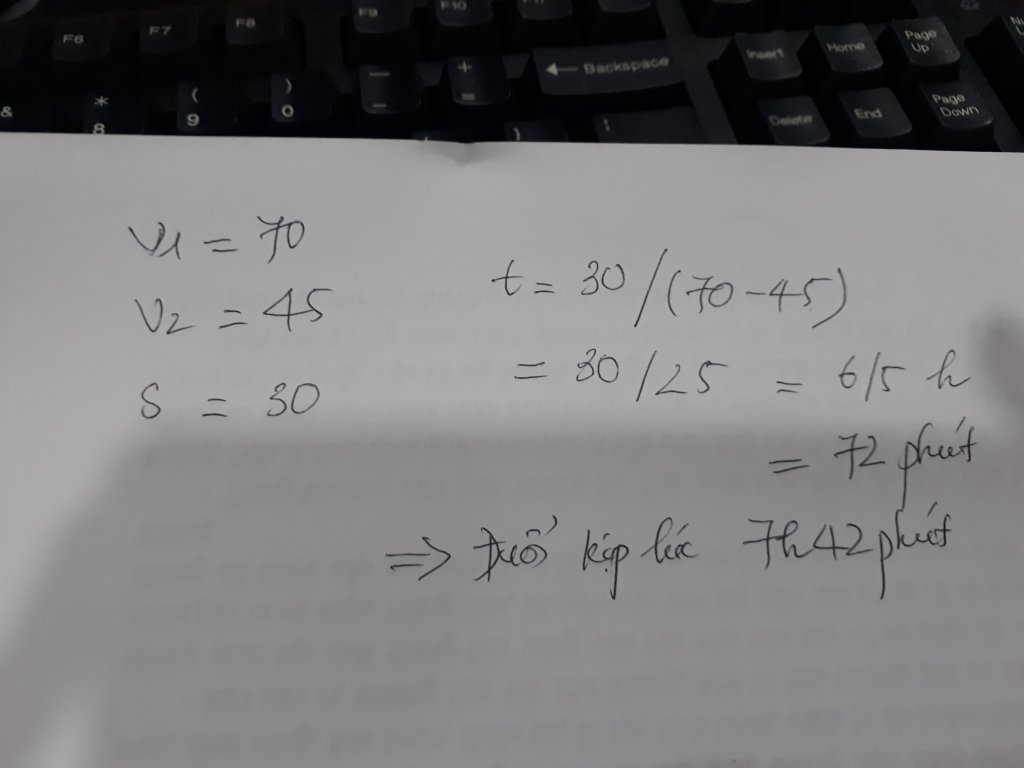 F6 F7 F8 F9 F10
Insert Home Page Up
& * 8 ( 9 ) 0 — - + = ← Backspace
Delete End Page Down
V1 = 70
V2 = 45
S = 30
t = 30/(70-45)
= 30/25 = 6/5 h
= 72 phút
=> Đuổi kịp lúc 7h42 phút